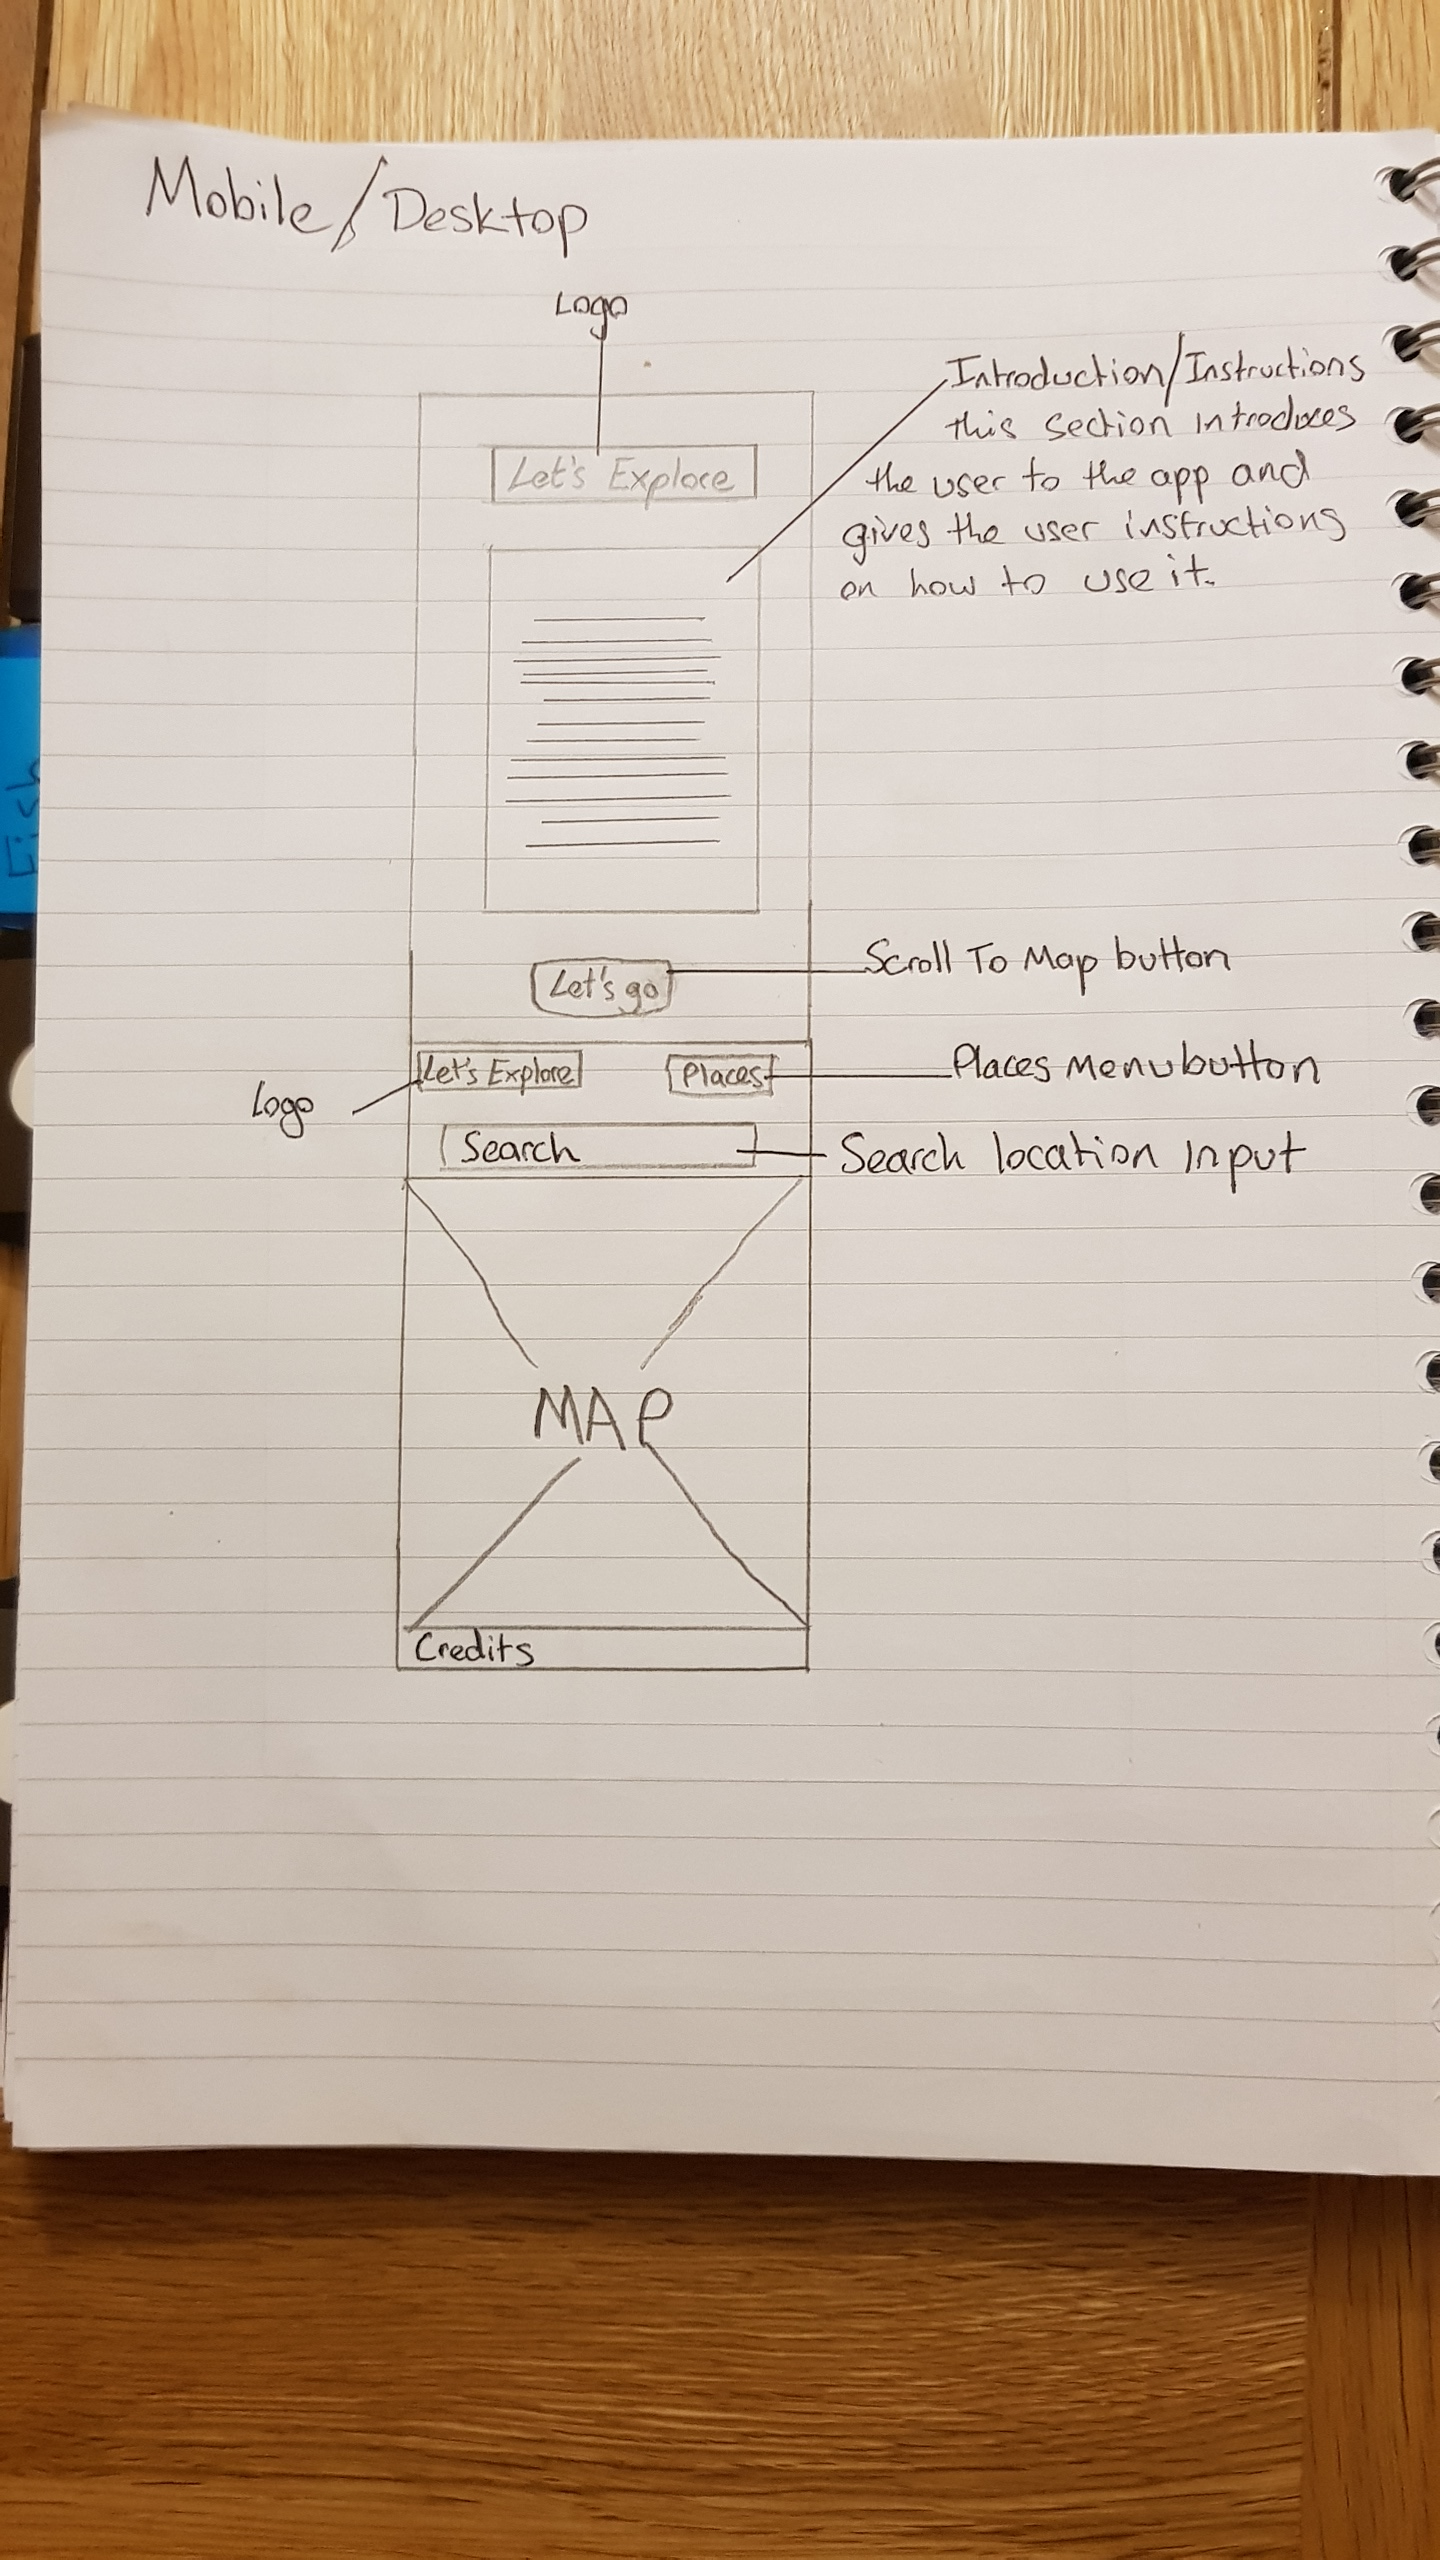 Mobile/Desktop
Logo
Introduction/Instructions
this section introduces
the user to the app and
gives the user instructions
on how to use it.
Let's Explore
Let's go
Scroll To Map button
Let's Explore
Places
Places Menu button
Logo
Search
Search location Input
MAP
Credits